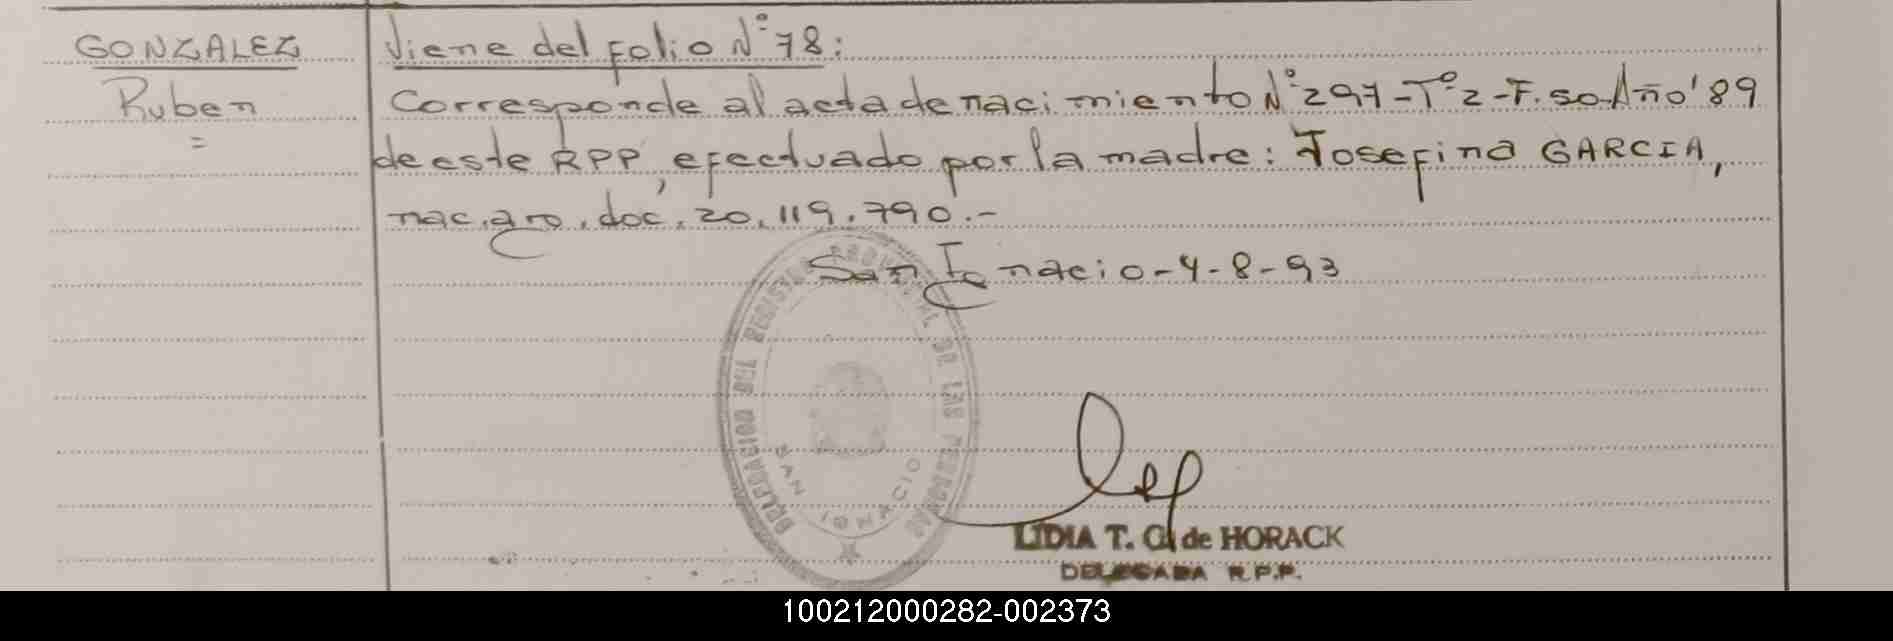 GONZALEZ
Ruben
=
Viene del folio N° 78:
Corresponde al acta de nacimiento N° 297-T° 2-F. 50-Año '89
de este RPP, efectuado por la madre: Josefina GARCIA,
nac. arg. doc. 20.119.790.-
San Ignacio-4-8-93
DELEGACION DEL REGISTRO PROVINCIAL DE LAS PERSONAS
SAN IGNACIO
LIDIA T. G. de HORACK
DELEGADA R.P.P.
100212000282-002373